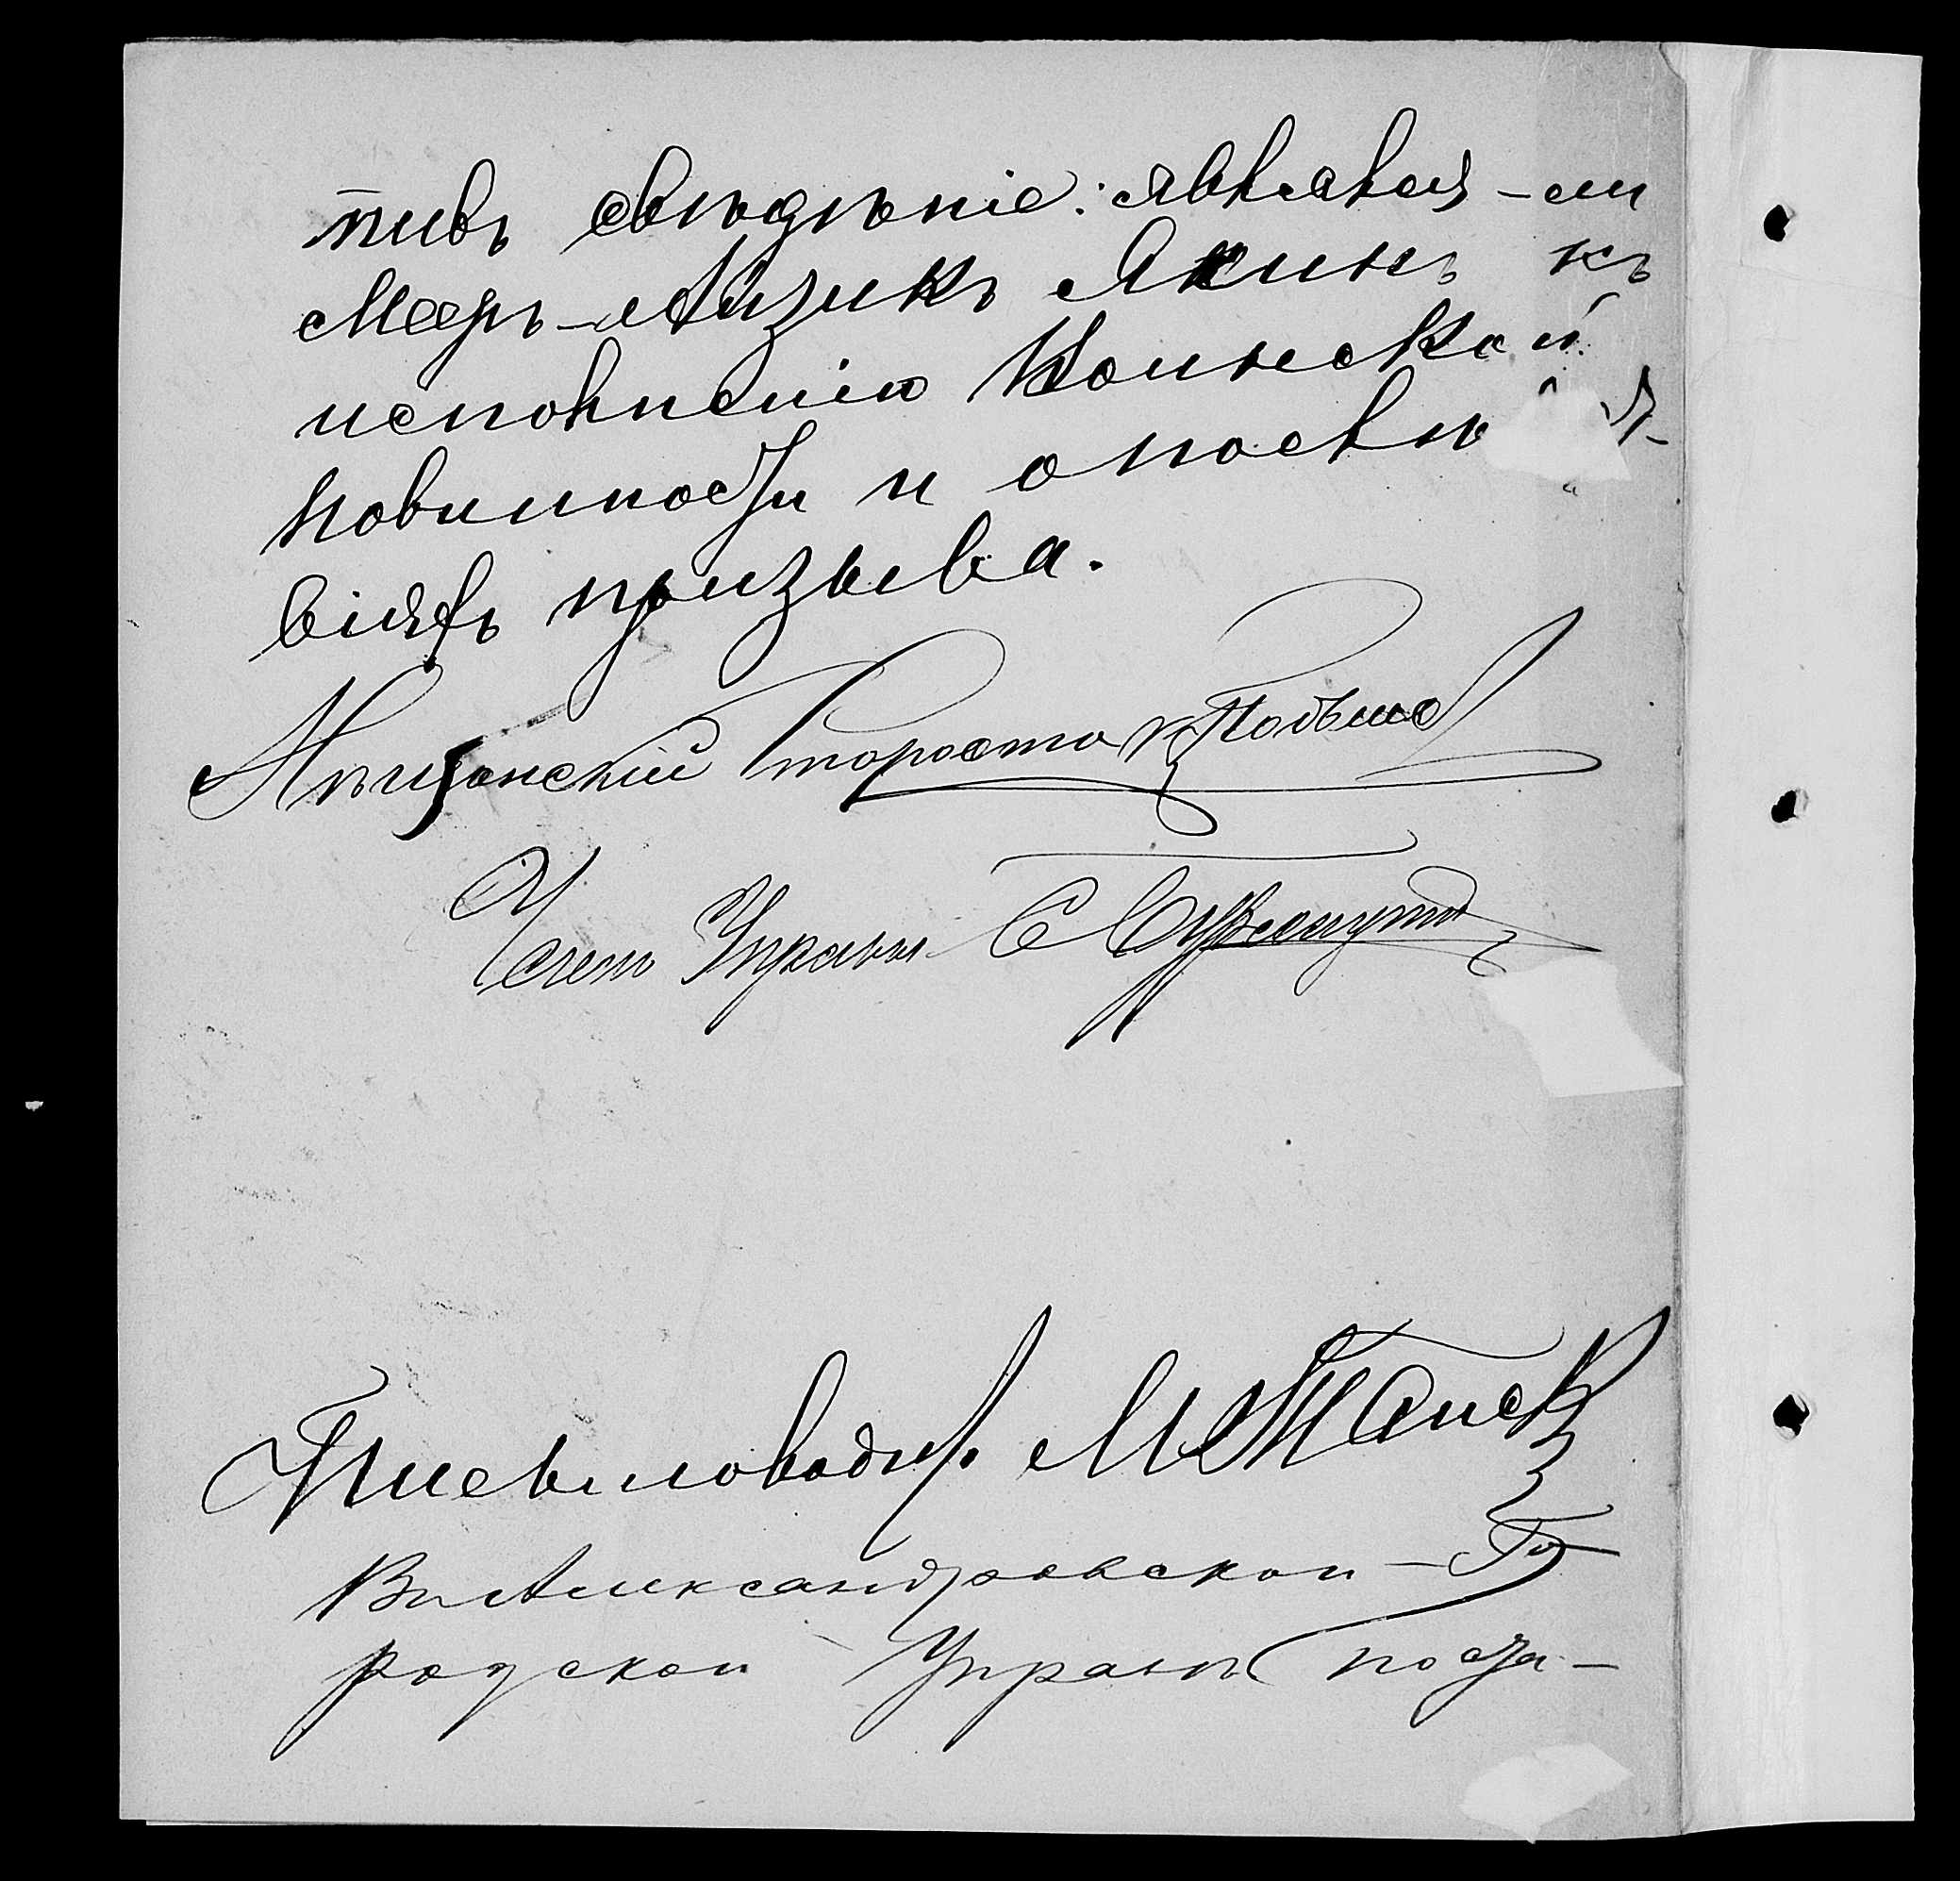 тивъ свѣдѣніе: являлся-ли
Мееръ-Айзикъ Якинъ къ
исполненію Воинской
повинности и о послѣд-
віяхъ призыва.
Мѣщанскій Староста
Членъ Управы С
Письмоводитель М
Въ Александровской Го-
родской Управѣ поста-